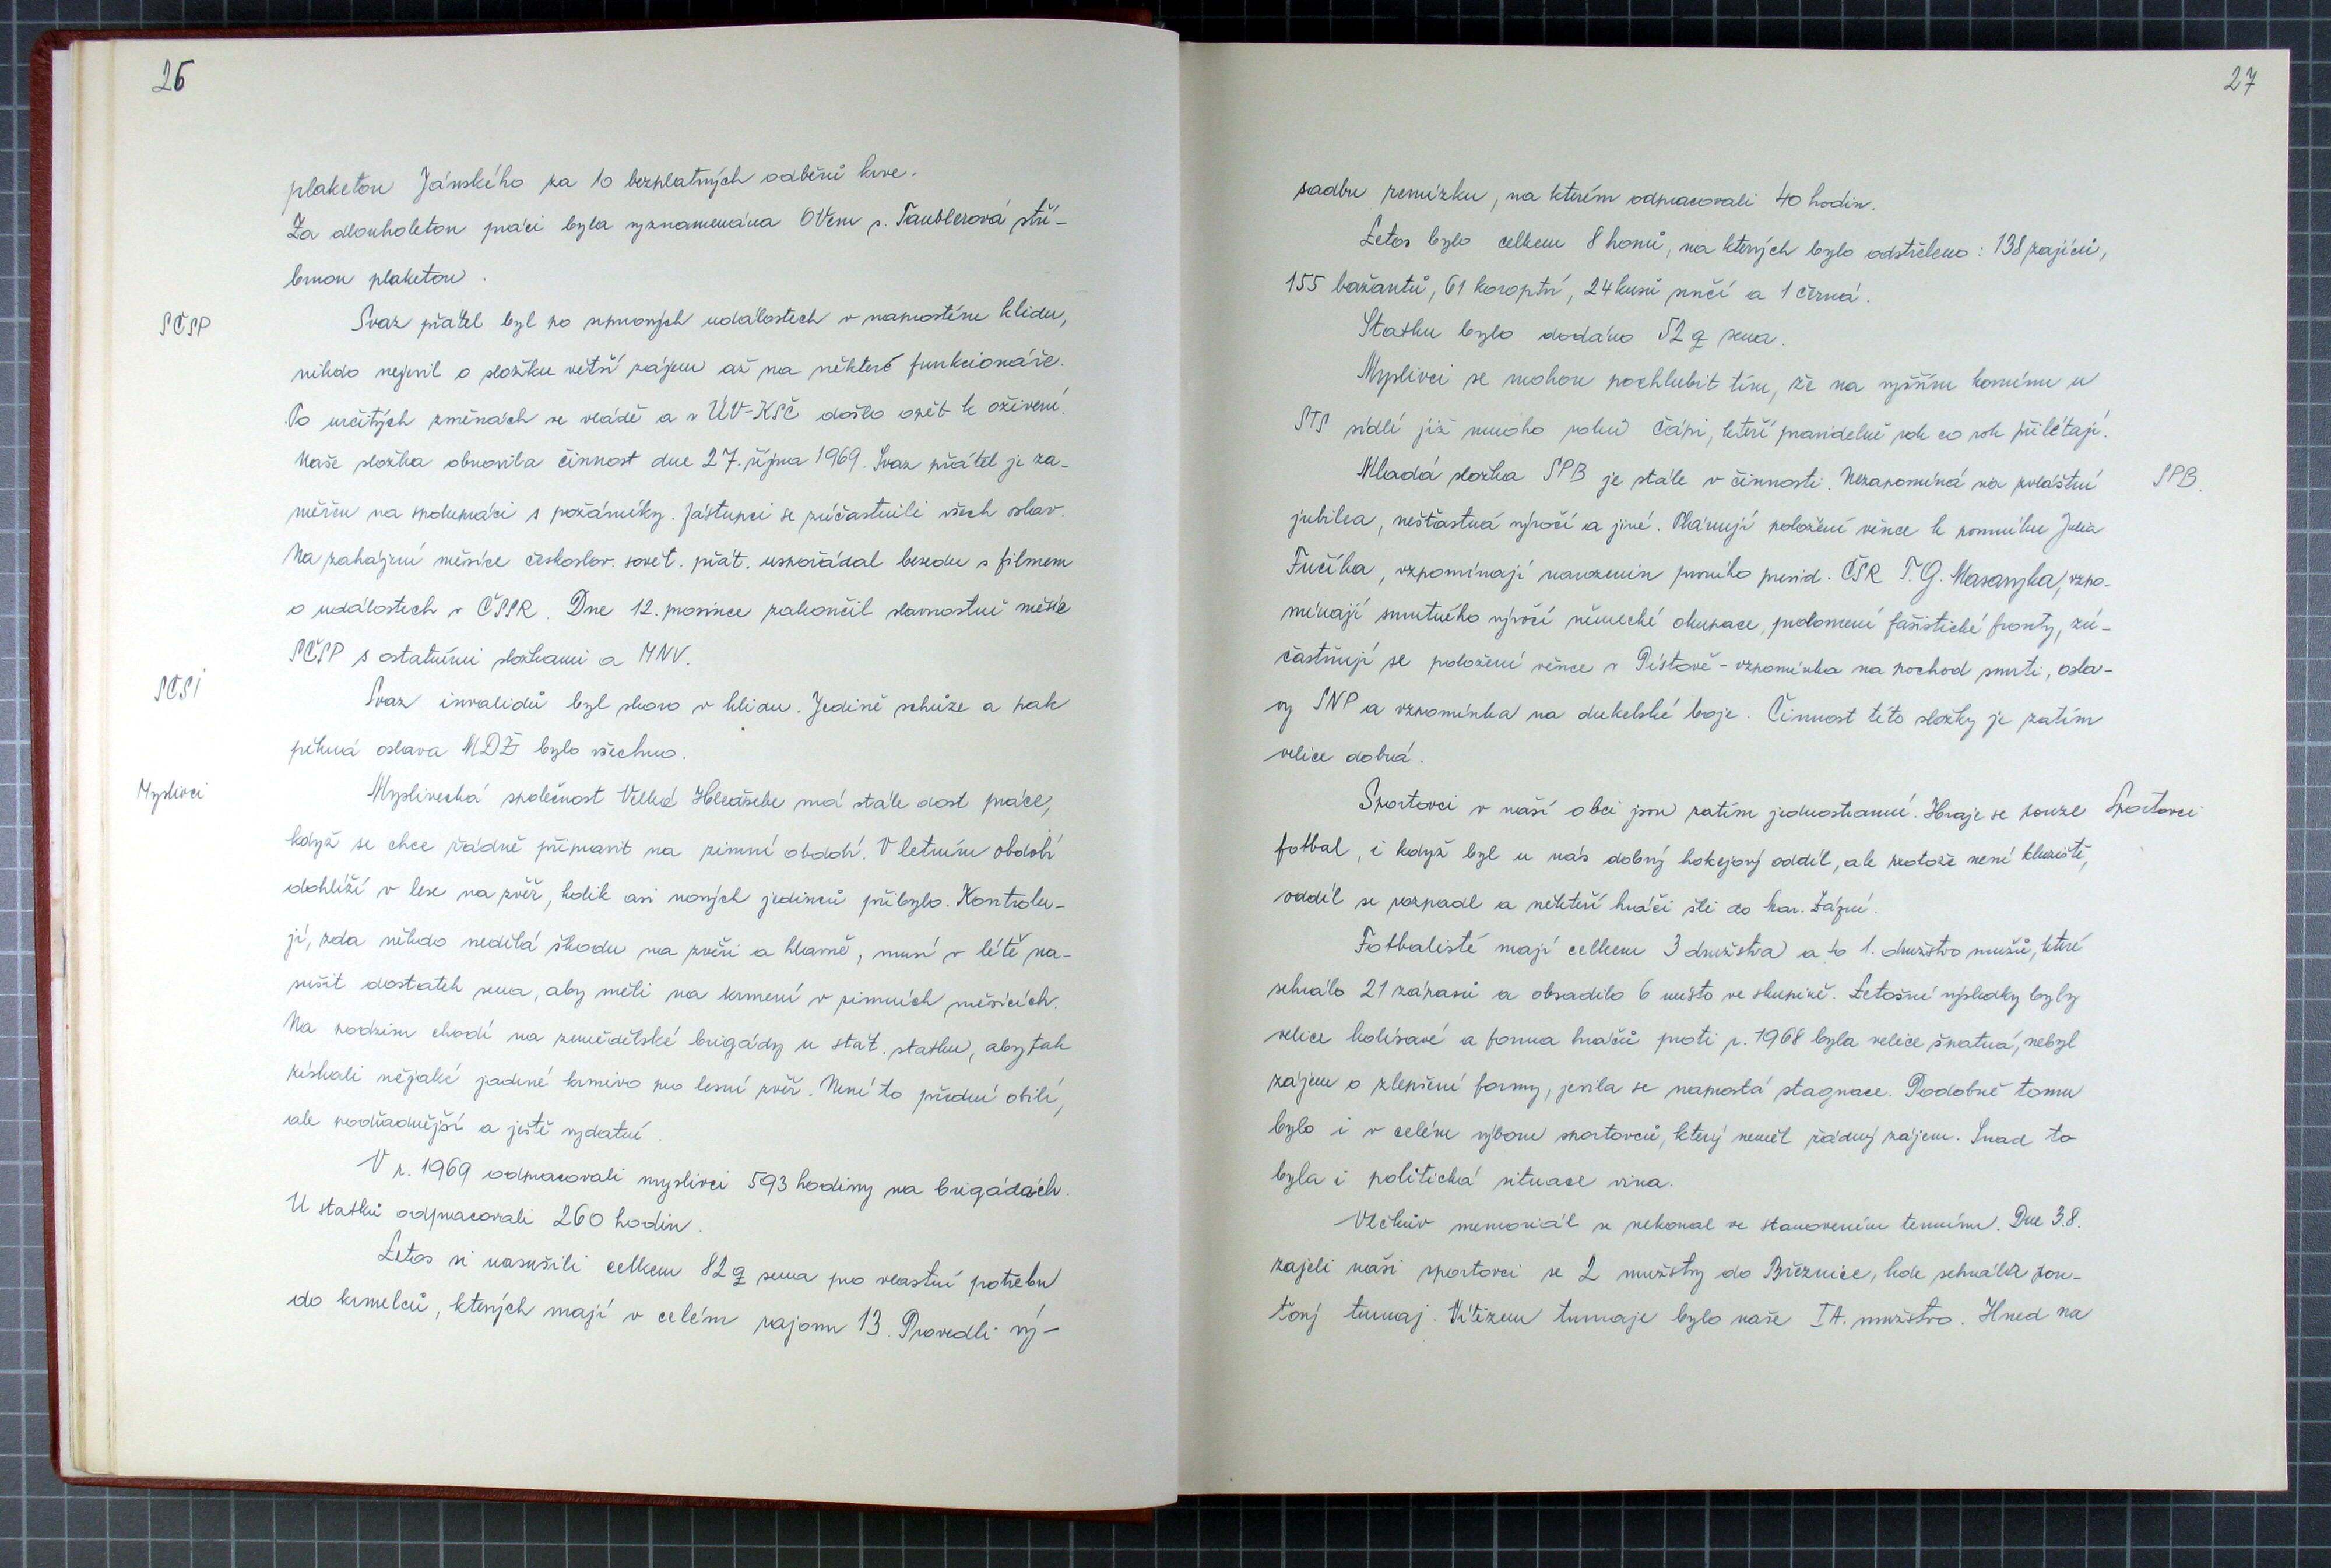 26
plaketou Jánského za 10 bezplatných odběrů krve.
Za dlouholetou práci byla vyznamenána OVem s. Taublerová stří-
brnou plaketou.
SČSP
Svaz přátel byl po srpnových událostech v naprostém klidu,
nikdo nejevil o složku větší zájem až na některé funkcionáře.
Po určitých změnách ve vládě a v ÚV-KSČ došlo opět k oživení.
Naše složka obnovila činnost dne 27. října 1969. Svaz přátel je za-
měřen na spolupráci s požárníky. Zástupci se zúčastnili všech oslav.
Na zahájení měsíce českoslov. sovět. přát. uspořádal besedu s filmem
o událostech v ČSSR. Dne 12. prosince zakončil slavnostně měsíc
SČSP s ostatními složkami a MNV.
SČSI
Svaz invalidů byl skoro v klidu. Jedině schůze a pak
pěkná oslava MDŽ bylo všechno.
Myslivci
Myslivecká společnost Velká Hleďsebe má stále dost práce,
když se chce řádně připravit na zimní období. V letním období
dohlíží v lese na zvěř, kolik asi nových jedinců přibylo. Kontrolu-
jí, zda někdo nedělá škodu na zvěři a hlavně, musí v létě na-
sušit dostatek sena, aby měli na krmení v zimních měsících.
Na podzim chodí na zemědělské brigády u stát. statku, aby tak
získali nějaké jaderné krmivo pro lesní zvěř. Není to přední obilí,
ale podřadnější a ještě vydatné.
V r. 1969 odpracovali myslivci 593 hodiny na brigádách.
U statků odpracovali 260 hodin.
Letos si nasušili celkem 82 q sena pro vlastní potřebu
do krmelců, kterých mají v celém rajonu 13. Provedli vý-
27
sadbu remízku, na kterém odpracovali 40 hodin.
Letos bylo celkem 8 honů, na kterých bylo odstřeleno: 138 zajíců,
155 bažantů, 61 koroptví, 24 kusů srnčí a 1 černá.
Statku bylo dodáno 52 q sena.
Myslivci se mohou pochlubit tím, že na vyšším komínu u
STS sídlí již mnoho roků čápi, kteří pravidelně rok co rok přilétají.
Mladá složka SPB je stále v činnosti. Nezapomíná na zvláštní
SPB.
jubilea, nešťastná výročí a jiné. Plánují položení věnce k pomníku Julia
Fučíka, vzpomínají narozenin prvního presid. ČSR T. G. Masaryka, vzpo-
mínají smutného výročí německé okupace, prolomení fašistické fronty, zú-
častňují se položení věnce v Pístově - vzpomínka na pochod smrti, osla-
vy SNP a vzpomínka na dukelské boje. Činnost této složky je zatím
velice dobrá.
Sportovci v naší obci jsou zatím jednostranní. Hraje se pouze
Sportovci
fotbal, i když byl u nás dobrý hokejový oddíl, ale protože není kluziště,
oddíl se rozpadl a někteří hráči šli do Mar. Lázní.
Fotbalisté mají celkem 3 družstva a to 1. družstvo mužů, které
sehrálo 21 zápasů a obsadilo 6 místo ve skupině. Letošní výsledky byly
velice kolísavé a forma hráčů proti r. 1968 byla velice špatná, nebyl
zájem o zlepšení formy, jevila se naprostá stagnace. Podobně tomu
bylo i v celém výboru sportovců, který neměl řádný zájem. Snad to
byla i politická situace vina.
Vlčkův memoriál se nekonal ve stanoveném termínu. Dne 3.8.
zajeli naši sportovci se 2 mužstvy do Březnice, kde sehráli pou-
ťový turnaj. Vítězem turnaje bylo naše IA. mužstvo. Hned na